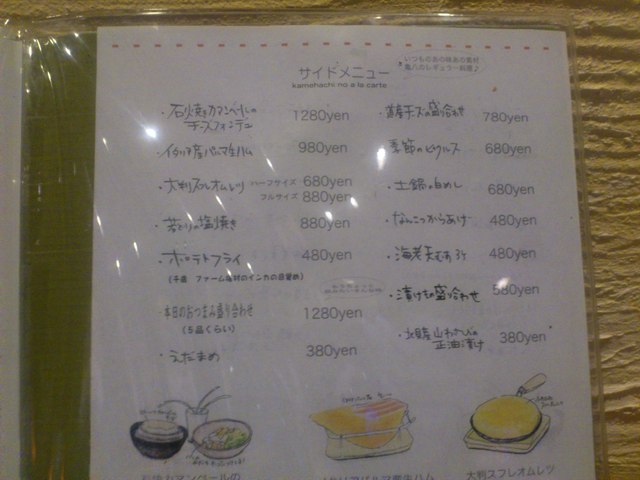 サイドメニュー
kamehachi no a la carte
いつものあの味あの素材
亀八のレギュラー料理♪
・石焼きカマンベールの
チーズフォンデュ 1280yen
・イタリア産パルマ生ハム 980yen
・大判スフレオムレツ ハーフサイズ 680yen
フルサイズ 880yen
・若どりの塩焼き 880yen
・ポテトフライ 480yen
(千歳 ファーム 村のインカの目覚め)
本日のおつまみ盛り合わせ 1280yen
(5品くらい)
・えだまめ 380yen
・道産チーズの盛り合わせ 780yen
・季節のピクルス 680yen
・土鍋の白めし 680yen
・なんこつからあげ 480yen
・海老天むす 480yen
・漬けもの盛り合わせ 580yen
・北見産山わさびの
正油漬け 380yen
大判スフレオムレツ